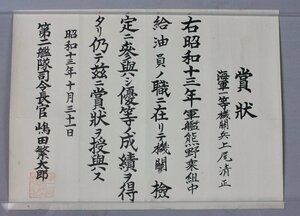 賞状
海軍一等機關兵上尾清正
右昭和十三年軍艦熊野乗組中
給油員ノ職ニ在リテ機關檢
定ニ參與シ優等ノ成績ヲ得
タリ仍テ茲ニ賞狀ヲ授與ス
昭和十三年十月三十一日
第二艦隊司令長官嶋田繁太郎